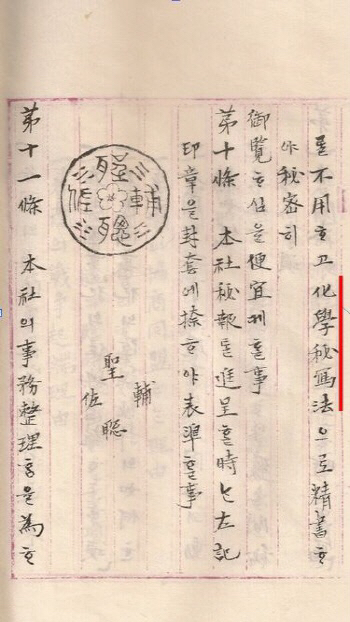 를不用ᄒᆞ고化學秘寫法으로精書ᄒᆞ
야秘密히
御覽ᄒᆞ심을便宜케ᄒᆞᆯ事
第十條 本社秘報를進呈ᄒᆞᆯ時ᄂᆞᆫ左記
印章을封套에搽ᄒᆞ야表準ᄒᆞᆯ事
輔
聖聰
佐
第十一條 本社의事務整理홈을爲ᄒᆞ